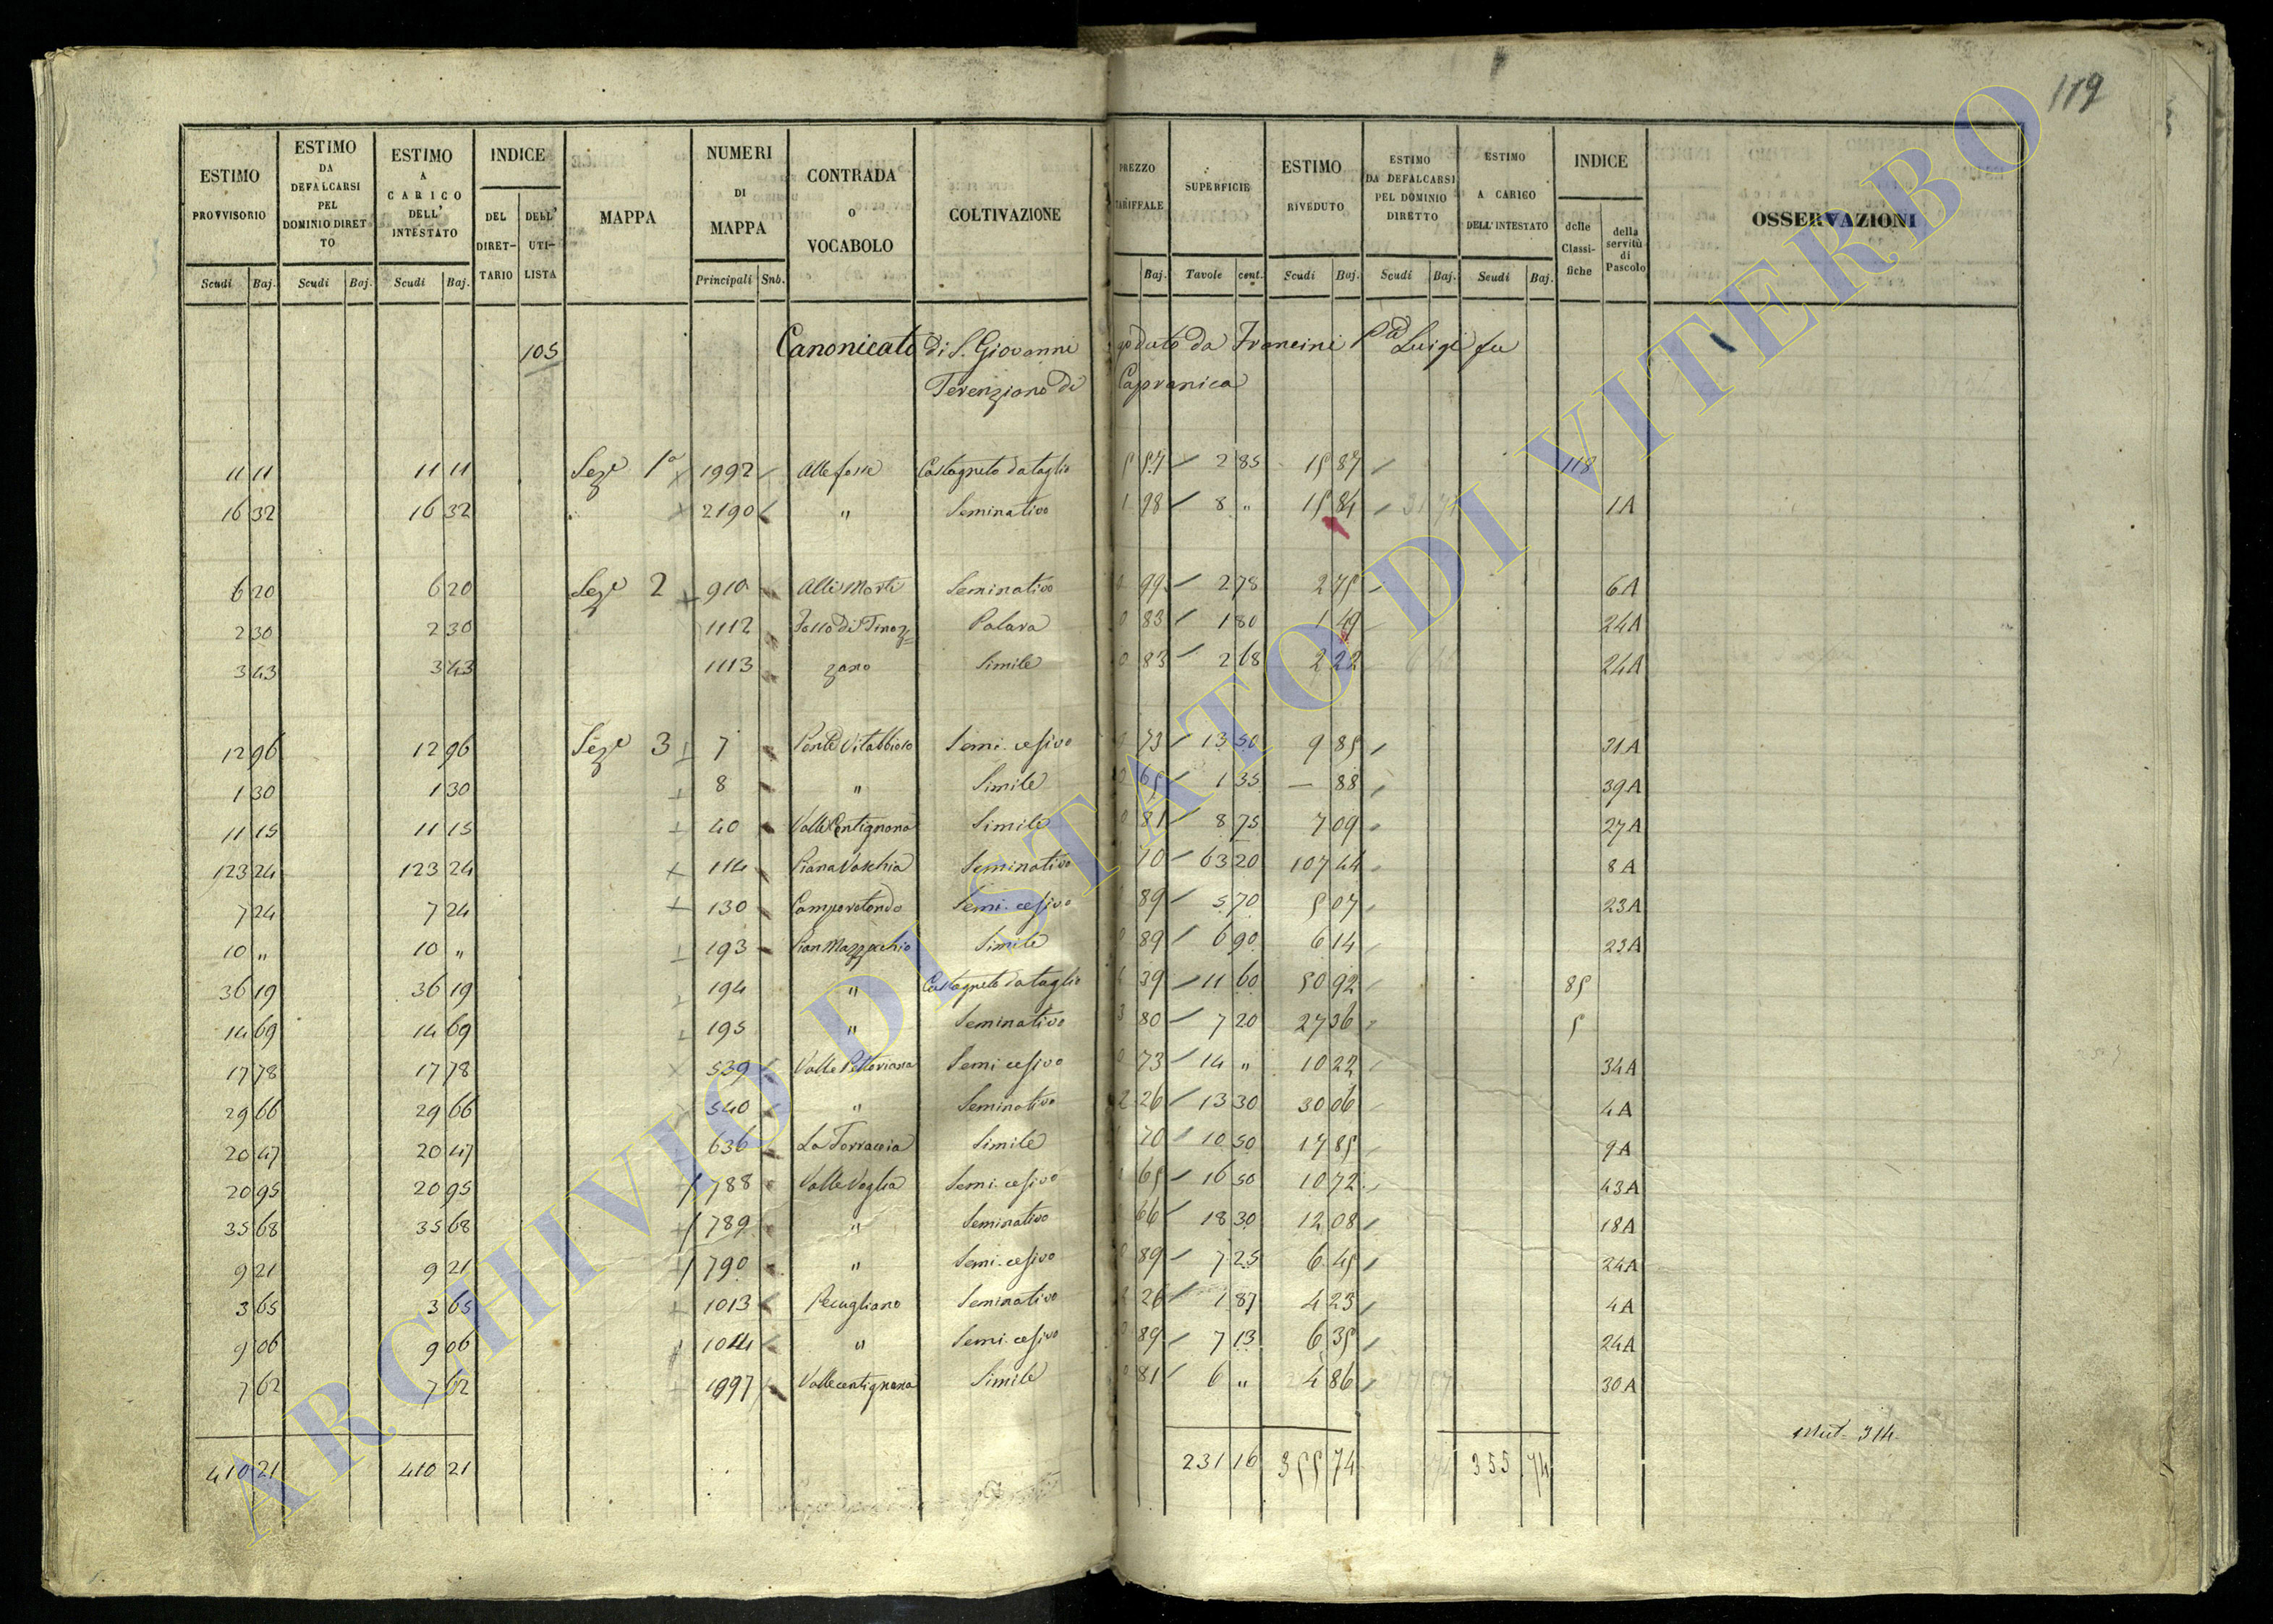 119
ESTIMO PROVVISORIO | ESTIMO DA DEFALCARSI PEL DOMINIO DIRETTO | ESTIMO A CARICO DELL' INTESTATO | INDICE | MAPPA | NUMERI DI MAPPA | CONTRADA O VOCABOLO | COLTIVAZIONE | PREZZO TARIFFALE | SUPERFICIE | ESTIMO RIVEDUTO | ESTIMO DA DEFALCARSI PEL DOMINIO DIRETTO | ESTIMO A CARICO DELL' INTESTATO | INDICE | OSSERVAZIONI
DEL DIRETTARIO | DELL' UTILISTA | delle Classifiche | della servitù di Pascolo
Scudi | Baj. | Scudi | Baj. | Scudi | Baj. | Principali | Sub. | Baj. | Tavole | cent. | Scudi | Baj. | Scudi | Baj. | Scudi | Baj.
105 Canonicato di S. Giovanni goduto da Francini Luigi fu
Terenziano di Capranica
11 11 | 11 11 | Seze 1a | 1992 | Alle fosse | Castagneto da taglio | 5 57 | 2 85 | 15 87 | 118
16 32 | 16 32 | 2190 | " | Seminativo | 1 98 | 8 " | 15 84 | 1A
6 20 | 6 20 | Seze 2 | 910 | Alli Morti | Seminativo | 0 99 | 2 78 | 2 75 | 6A
2 30 | 2 30 | 1112 | Fosso di Tinoz= | Palara | 0 83 | 1 80 | 1 49 | 24A
3 43 | 3 43 | 1113 | zano | Simile | 0 83 | 2 68 | 2 22 | 24A
12 96 | 12 96 | Seze 3 | 7 | Ponte Vitabbioso | Semi. cesivo | 0 73 | 13 50 | 9 85 | 31A
1 30 | 1 30 | 8 | " | Simile | 0 65 | 1 35 | — 88 | 39A
11 15 | 11 15 | 40 | Valle Centignana | Simile | 0 81 | 8 75 | 7 09 | 27A
123 24 | 123 24 | 114 | Piana Vecchia | Seminativo | 70 | 63 20 | 107 44 | 8A
7 24 | 7 24 | 130 | Camporotondo | Semi. cesivo | 89 | 5 70 | 5 07 | 23A
10 " | 10 " | 193 | Pian Mazzocchio | Simile | 0 89 | 6 90 | 6 14 | 23A
36 19 | 36 19 | 194 | " | Castagneto da taglio | 39 | 11 60 | 50 92 | 85
14 69 | 14 69 | 195 | " | Seminativo | 3 80 | 7 20 | 27 36 | 5
17 78 | 17 78 | 539 | Valle Pettoriana | Semi cesivo | 0 73 | 14 " | 10 22 | 34A
29 66 | 29 66 | 540 | " | Seminativo | 2 26 | 13 30 | 30 06 | 4A
20 47 | 20 47 | 636 | La Torraccia | Simile | 70 | 10 50 | 17 85 | 9A
20 95 | 20 95 | 788 | Valle Veglia | Semi. cesivo | 65 | 16 50 | 10 72 | 43A
35 68 | 35 68 | 789 | " | Seminativo | 66 | 18 30 | 12 08 | 18A
9 21 | 9 21 | 790 | " | Semi. cesivo | 89 | 7 25 | 6 45 | 24A
3 65 | 3 65 | 1013 | Pecugliano | Seminativo | 2 26 | 1 87 | 4 23 | 4A
9 06 | 9 06 | 1014 | " | Semi. cesivo | 0 89 | 7 13 | 6 35 | 24A
7 62 | 7 62 | 1997 | Valle centignana | Simile | 0 81 | 6 " | 4 86 | 30A
Mut. 314
410 21 | 410 21 | 231 16 | 355 74 | 355 74
ARCHIVIO DI STATO DI VITERBO